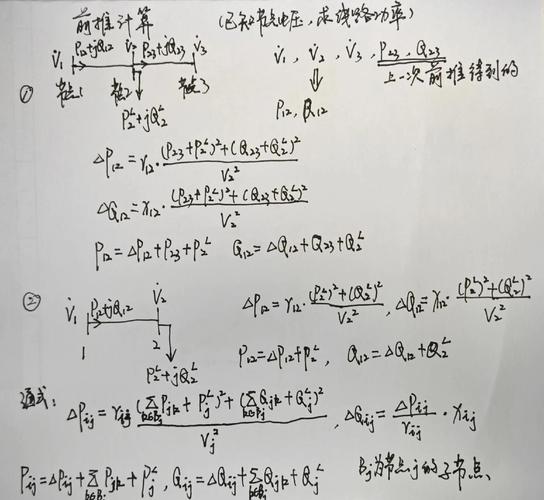 前推计算 (已知节点电压,求线路功率)
V̇₁ P₁₂+jQ₁₂ V̇₂ P₂₃+jQ₂₃ V̇₃ V̇₁, V̇₂, V̇₃, P₂₃, Q₂₃
① 节点1 节点2 节点3 ⇓ 上一次前推得到的
P₂ᴸ+jQ₂ᴸ P₁₂, Q₁₂
ΔP₁₂ = r₁₂· ((P₂₃+P₂ᴸ)²+(Q₂₃+Q₂ᴸ)²)/V₂²
ΔQ₁₂ = x₁₂· ((P₂₃+P₂ᴸ)²+(Q₂₃+Q₂ᴸ)²)/V₂²
P₁₂ = ΔP₁₂+P₂₃+P₂ᴸ Q₁₂ = ΔQ₁₂+Q₂₃+Q₂ᴸ
② V̇₁ P₁₂+jQ₁₂ V̇₂ ΔP₁₂ = r₁₂· ((P₂ᴸ)²+(Q₂ᴸ)²)/V₂², ΔQ₁₂ = x₁₂· ((P₂ᴸ)²+(Q₂ᴸ)²)/V₂²
1 2 P₁₂=ΔP₁₂+P₂ᴸ, Q₁₂=ΔQ₁₂+Q₂ᴸ
P₂ᴸ+jQ₂ᴸ
通式: ΔPij = rij ((∑k∈Bj Pjk+Pjᴸ)²+(∑k∈Bj Qjk+Qjᴸ)²)/Vj², ΔQij = ΔPij/rij · xij
Pij=ΔPij+∑k∈Bj Pjk+Pjᴸ, Qij=ΔQij+∑k∈Bj Qjk+Qjᴸ Bj为节点j的子节点、